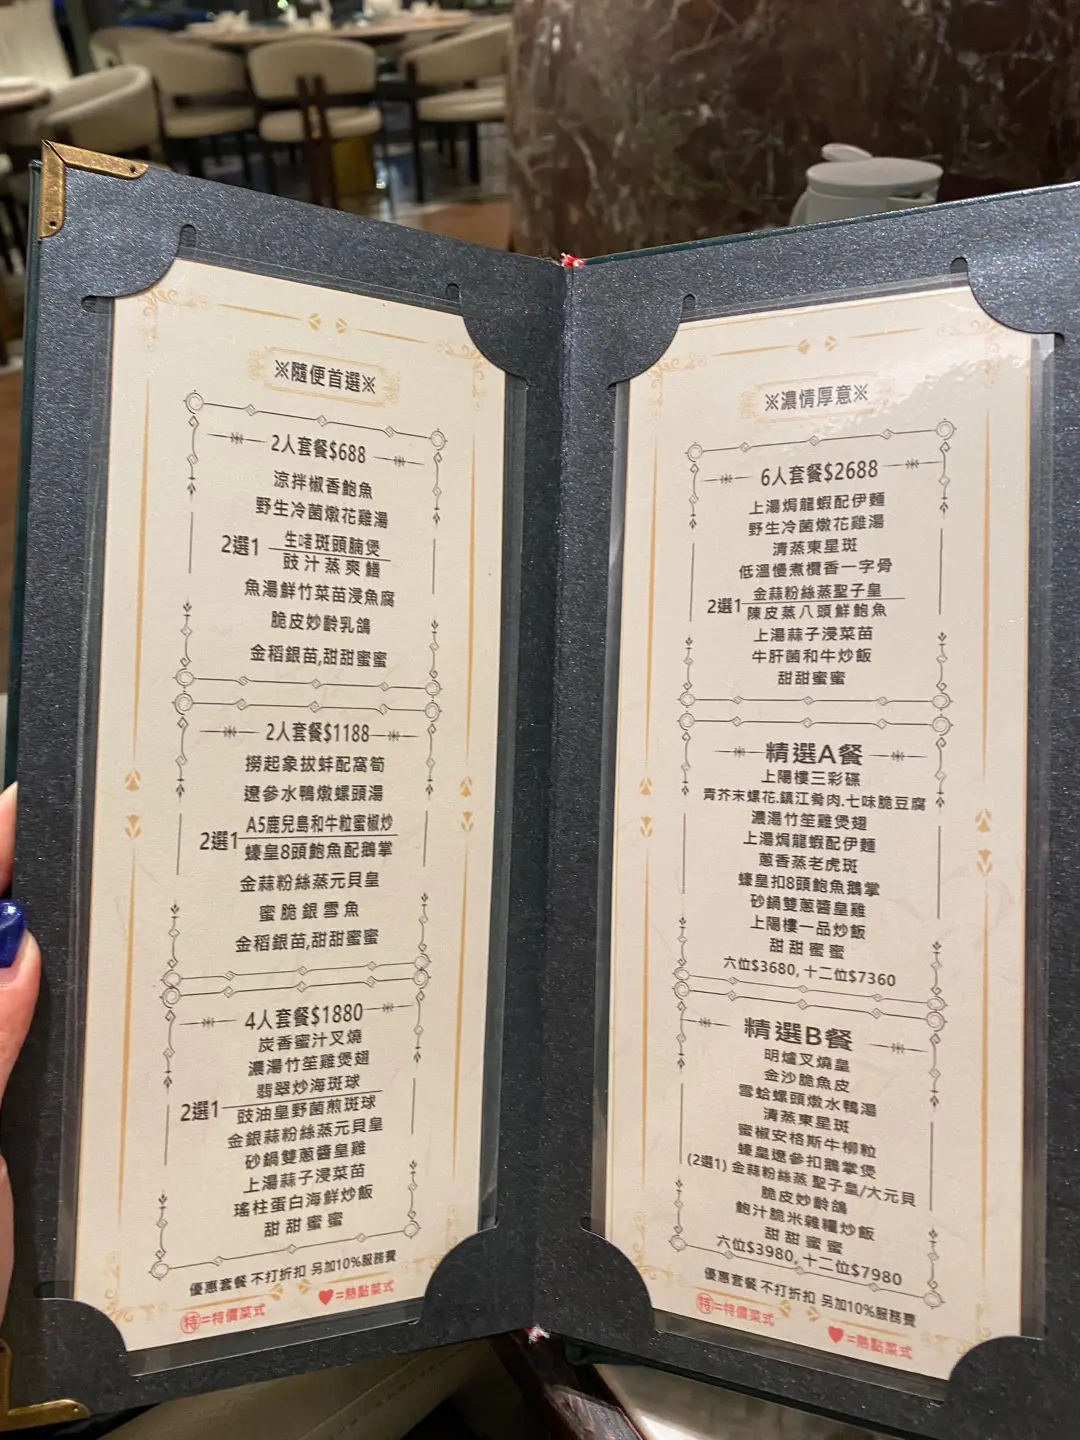 ※隨便首選※
2人套餐$688
涼拌椒香鮑魚
野生冷菌燉花雞湯
2選1
生啫斑頭腩煲
豉汁蒸爽鱔
魚湯鮮竹菜苗浸魚腐
脆皮妙齡乳鴿
金稻銀苗,甜甜蜜蜜
2人套餐$1188
撈起象拔蚌配窩筍
遼參水鴨燉螺頭湯
2選1
A5鹿兒島和牛粒蜜椒炒
蠔皇8頭鮑魚配鵝掌
金蒜粉絲蒸元貝皇
蜜脆銀雪魚
金稻銀苗,甜甜蜜蜜
4人套餐$1880
炭香蜜汁叉燒
濃湯竹笙雞煲翅
2選1
翡翠炒海斑球
豉油皇野菌煎斑球
金銀蒜粉絲蒸元貝皇
砂鍋雙蔥醬皇雞
上湯蒜子浸菜苗
瑤柱蛋白海鮮炒飯
甜甜蜜蜜
優惠套餐 不打折扣 另加10%服務費
特=特價菜式
♥=熱點菜式
※濃情厚意※
6人套餐$2688
上湯焗龍蝦配伊麵
野生冷菌燉花雞湯
清蒸東星斑
低溫慢煮欖香一字骨
2選1
金蒜粉絲蒸聖子皇
陳皮蒸八頭鮮鮑魚
上湯蒜子浸菜苗
牛肝菌和牛炒飯
甜甜蜜蜜
精選A餐
上陽樓三彩碟
青芥末螺花.鎮江肴肉.七味脆豆腐
濃湯竹笙雞煲翅
上湯焗龍蝦配伊麵
蔥香蒸老虎斑
蠔皇扣8頭鮑魚鵝掌
砂鍋雙蔥醬皇雞
上陽樓一品炒飯
甜甜蜜蜜
六位$3680, 十二位$7360
精選B餐
明爐叉燒皇
金沙脆魚皮
雪蛤螺頭燉水鴨湯
清蒸東星斑
蜜椒安格斯牛柳粒
蠔皇遼參扣鵝掌煲
(2選1) 金蒜粉絲蒸 聖子皇/大元貝
脆皮妙齡鴿
鮑汁脆米雜糧炒飯
甜甜蜜蜜
六位$3980, 十二位$7980
優惠套餐 不打折扣 另加10%服務費
特=特價菜式
♥=熱點菜式